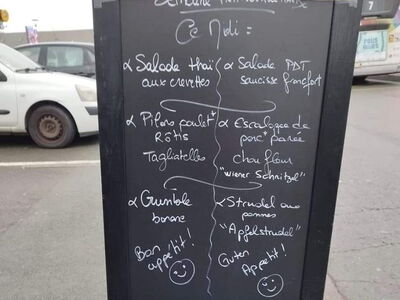 Ce Midi =
α Salade thaï
aux crevettes
α Salade PDT
saucisse francfort
α Pilons poulet
Rôtis
Tagliatelles
α Escalope de
porc panée
chou fleur
"wiener Schnitzel"
α
banane
α Strudel aux
pommes
"Apfelstrudel"
Bon
appétit!
Guten
Appetit!
7